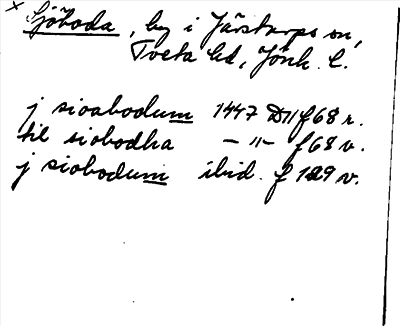 × Sjöboda, by i Järstorps sn,
Tveta hd, Jönk. l.
j sioabodum 1447 D11 f 68 r.
til siobodha – " – f 68 v.
j siobodum ibid. f 129 v.